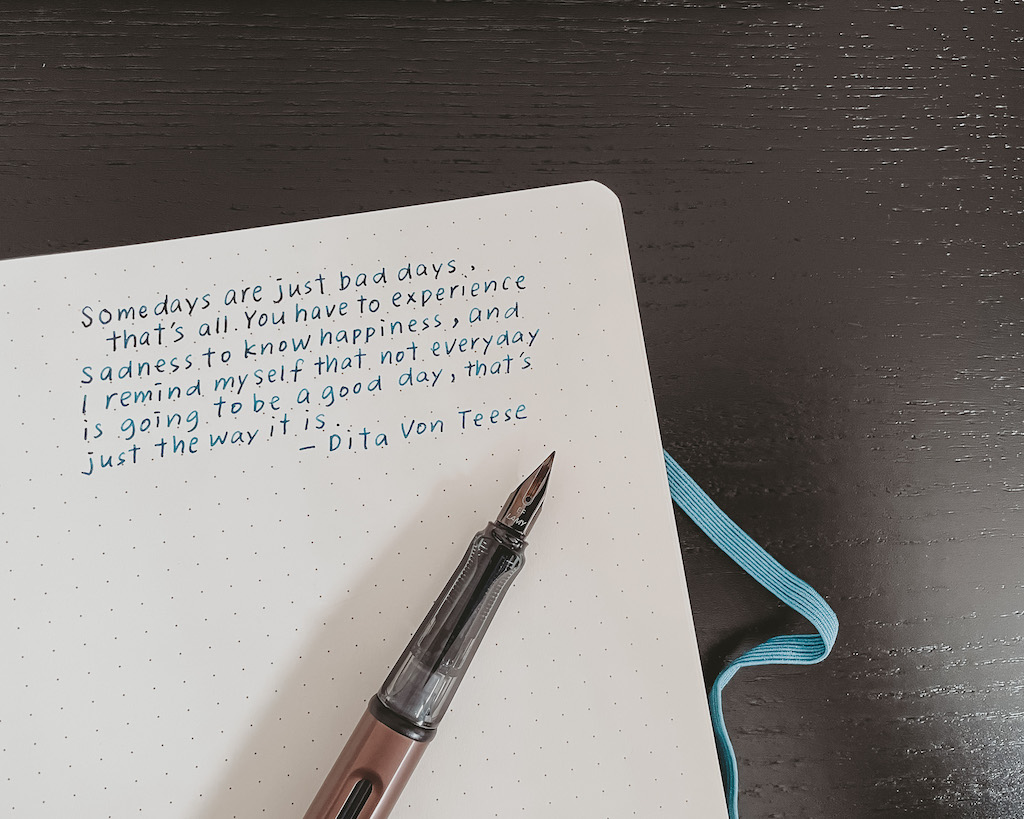 Some days are just bad days,
that's all. You have to experience
sadness to know happiness, and
I remind myself that not everyday
is going to be a good day, that's
just the way it is.
– Dita Von Teese
EF
LAMY